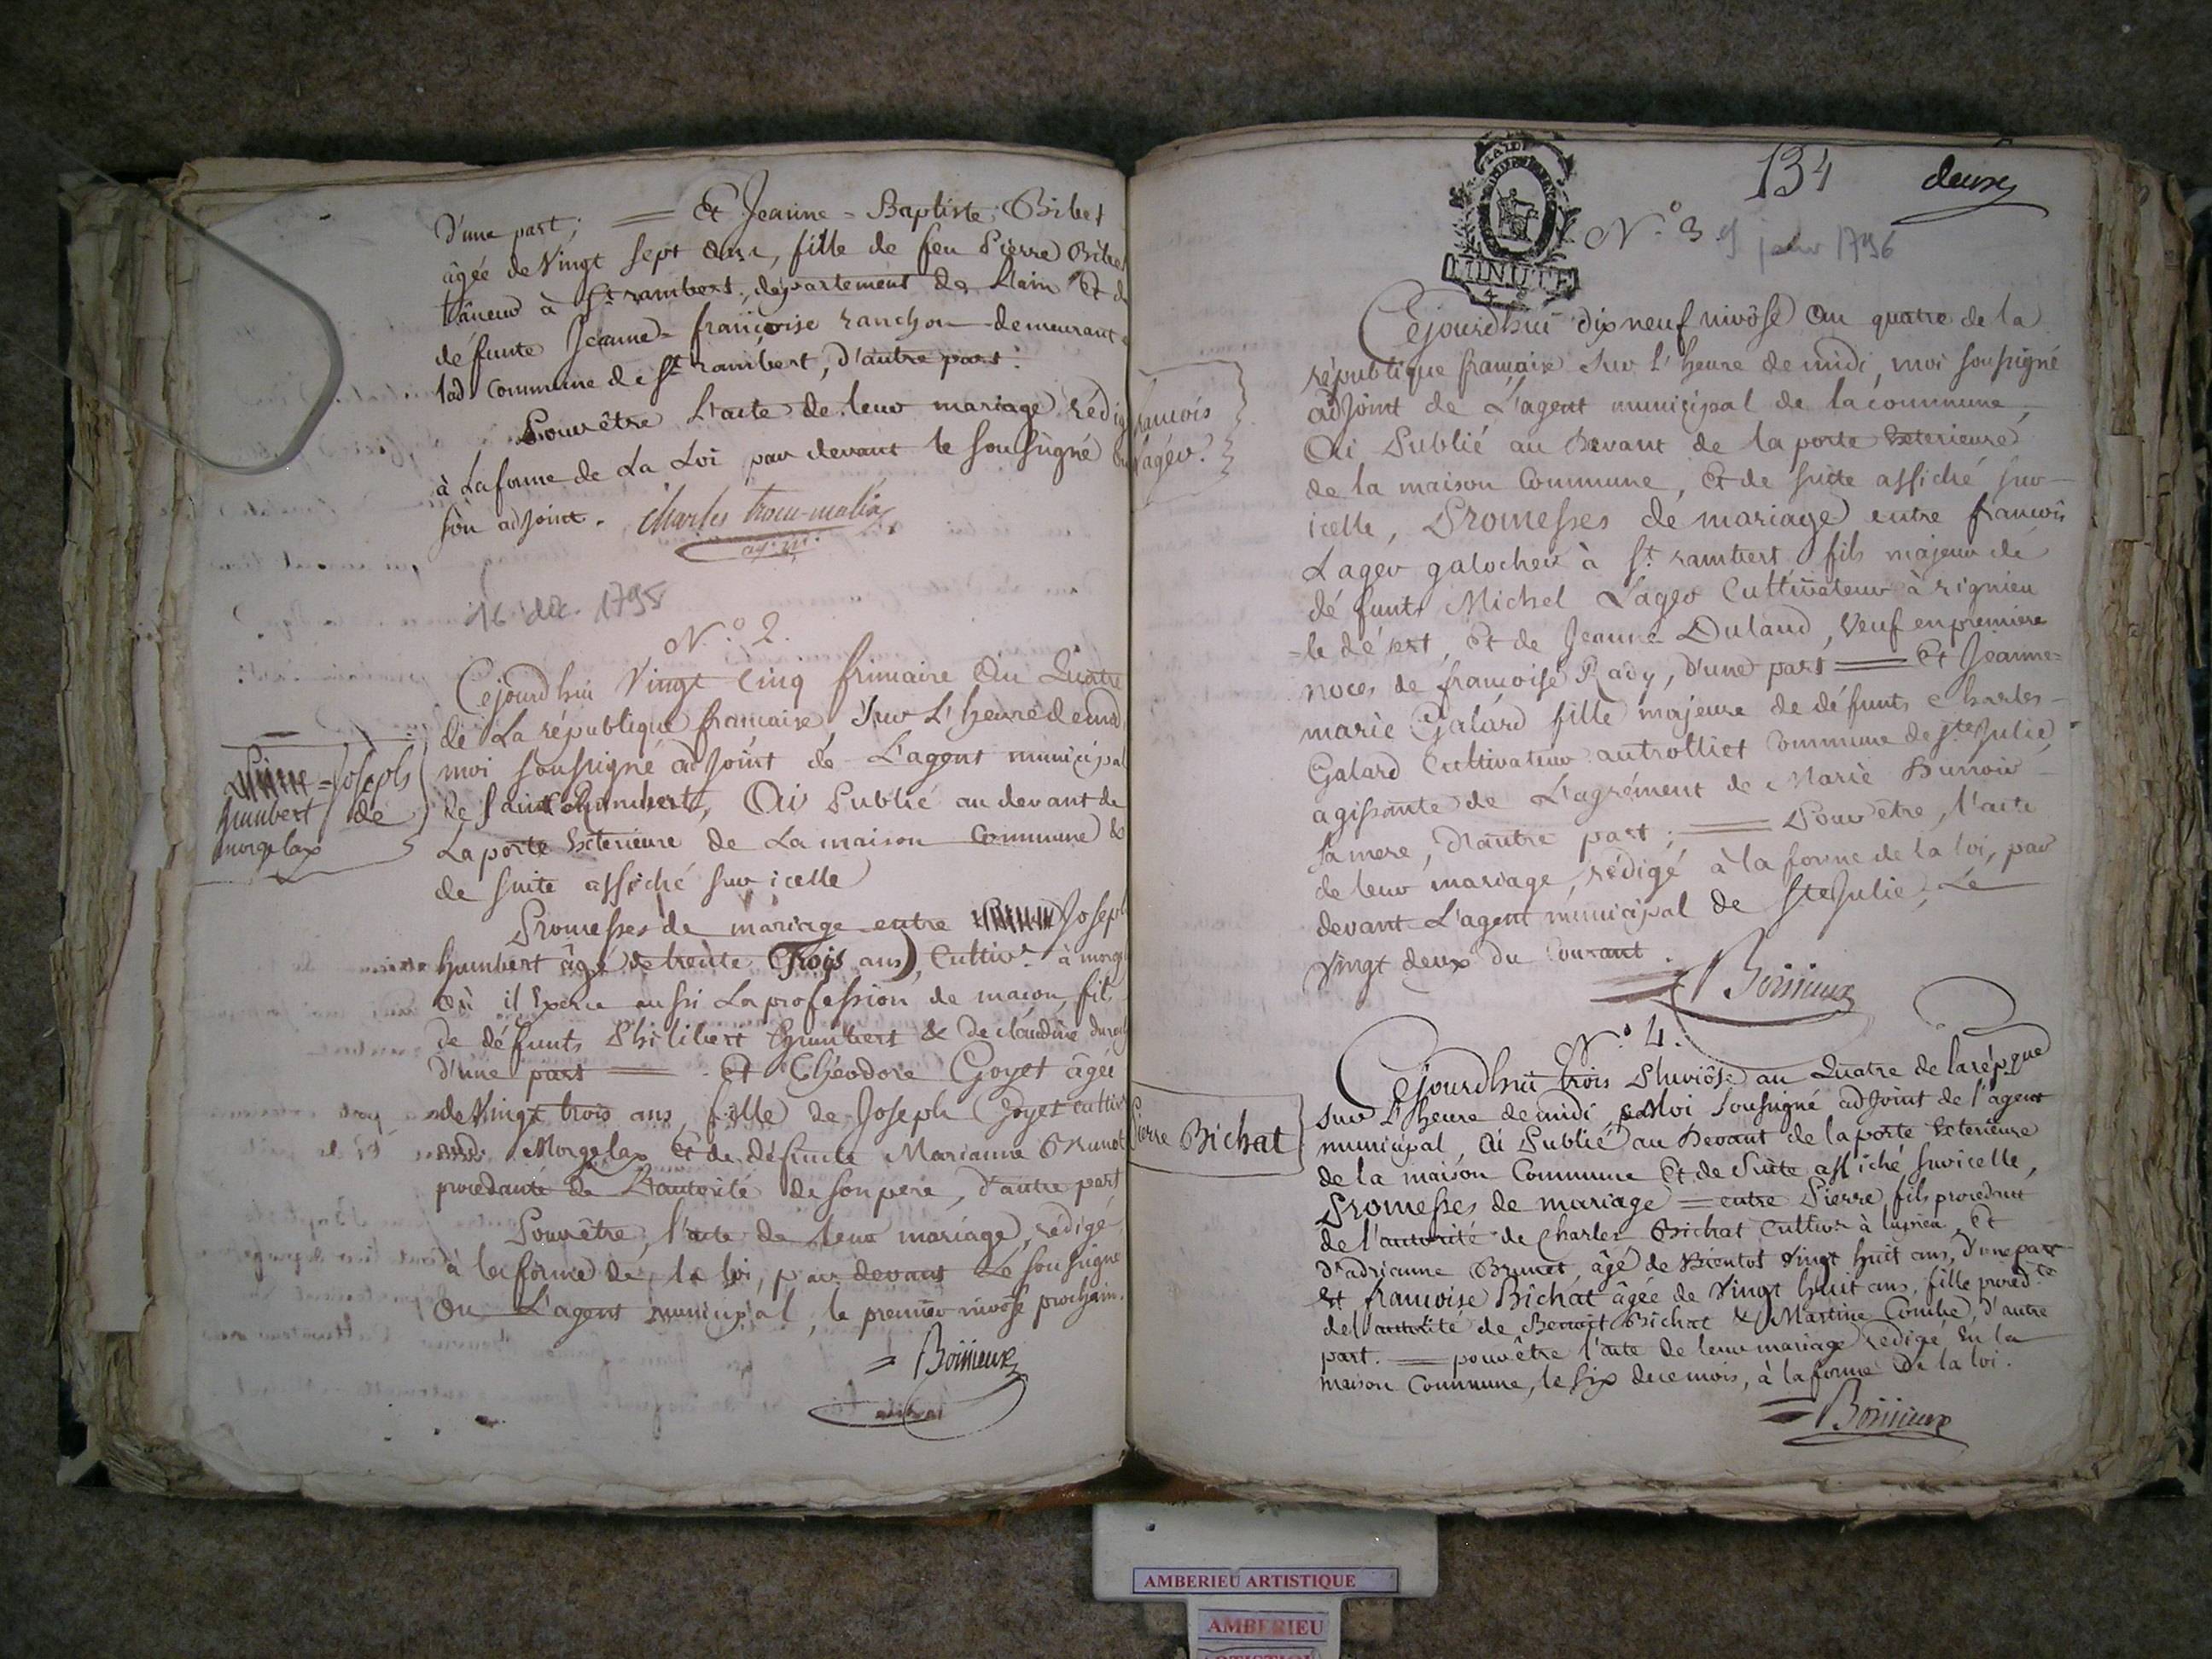 d'une part; = Et Jeanne = Baptiste Bibet
âgée de Vingt sept ans, fille de feu Pierre Bibet
tâneur à St rambert, département de Lain Et de
défunte Jeanne = françoise ranchon demeurant
lad commune de St rambert, d'autre part.
Pour être L'acte de leur mariage rédig
à La forme de La Loi par devant le soussigné
son adjoint. Charles trocu-
16 déc. 1795
N.° 2.
Cejourdhui Vingt Cinq frimaire An Quatre
de La république française, sur L'heure de midi
moi soussigné adjoint de L'agent municipal
de Saint Rambert, Ai Publié au devant de
La porte Exterieure de La maison Commune &
de suite affiché sur icelle
= Joseph
humbert de
morgelax
Promesses de mariage entre Joseph
humbert âgé de trente Trois ans, Cultivr. à morge
où il Exerce aussi La profession de maçon, fils
de défunts Philibert humbert & de claudine
d'une part = Et Théodore Goyet âgée
de Vingt trois ans, fille de Joseph Goyet cultivr
Morgelax Et de défunte Marianne Brunet
procedante de L'autorité de son pere, d'autre part
Pour être, l'acte de leur mariage, rédigé
à la forme de la loi, par devant Le soussigné
Ou L'agent municipal, le premier nivôse prochain.
= Boissieux
134 deux
MINUTE
N.° 3. 9 janv 1796
Cejourdhui dix neuf nivôse an quatre de la
république française sur L'heure de midi, moi soussigné
adjoint de L'agent municipal de la commune,
Ai Publié au Devant de la porte Exterieure
de la maison Commune, Et de suite affiché sur
icelle, Promesses de mariage entre francois
françois
Lager
Lager galocher à St rambert fils majeur de
défunts Michel Lager Cultivateur à rignieu
= le désert, Et de Jeanne Dulaud, Veuf en premiere
noces de françoise Rady, d'une part = Et Jeanne =
marie Galard fille majeure de défunts Charles
Galard Cultivateur au trolliet Commune de Ste Julie,
agissante de L'agrément de Marie
sa mere, d'autre part; = Pour être, l'acte
de leur mariage, rédigé à la forme de la loi, par
devant L'agent municipal de Ste Julie, Le
Vingt deux du Courant.
= Boissieux
N.° 4.
Cejourdhui trois Pluviôse an Quatre de la répque
sur L'heure de midi, Moi soussigné adjoint de l'agent
municipal, Ai Publié au Devant de la porte Exterieure
Pierre Bichat
de la maison Commune Et de Suite affiché sur icelle,
Promesses de mariage = entre Pierre fils procedant
de l'autorité de Charles Bichat Cultivr à lupieu, Et
d'adrianne Brunet âgé de Bientot Vingt huit ans, d'une part
Et françoise Bichat âgée de Vingt huit ans, fille procedte
de l'autorité de Benoit Bichat & Martine Combe, d'autre
part. = pour être l'acte de leur mariage rédigé En la
maison Commune, le six de ce mois, à la forme De la loi.
= Boissieux
AMBERIEU ARTISTIQUE
AMBERIEU
ARTISTIQUE